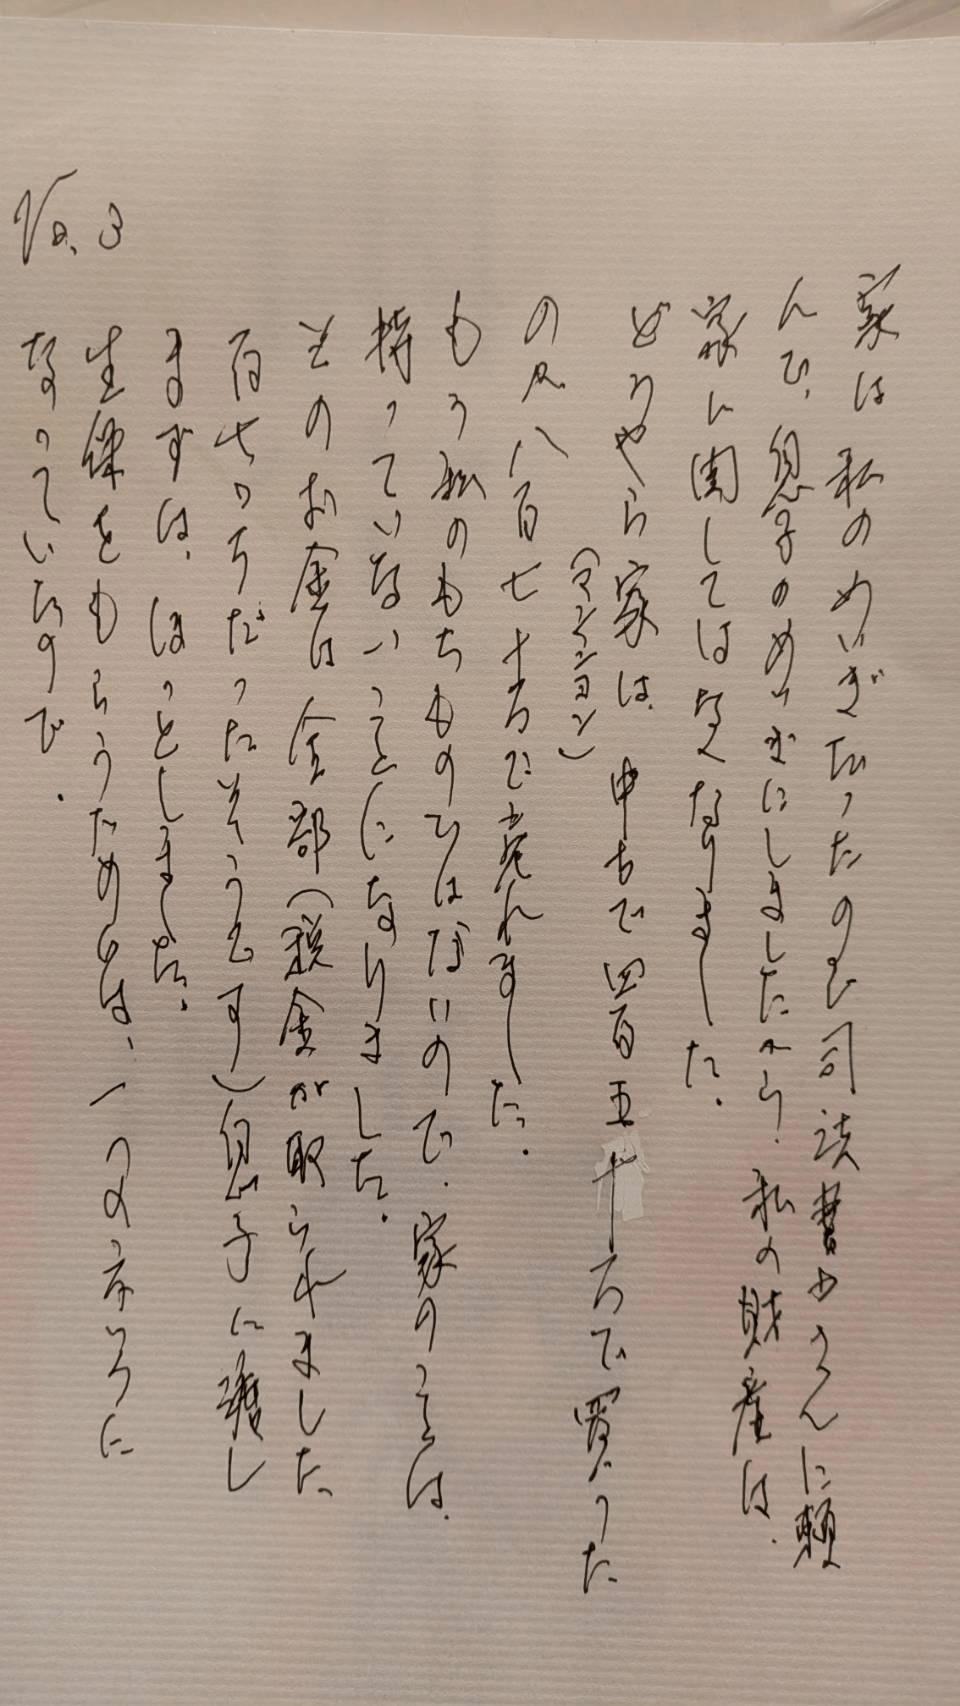 No.3
家は私のめいぎだったので司法書士さんに頼
んで、息子のめいぎにしましたから、私の財産は、
家に関してはなくなりました。
どうやら家は、中古で四百五十万で買った
(マンション)
の が 八百七十万で売れました。
もう私のもちものではないので、家のことは、
持っていないことになりました。
そのお金は全部(税金が取られました
百七十万だったそうです)息子に渡し
ますずは、ほっとしました。
生保をもらうためには、一つの京ろに
なっていたので、